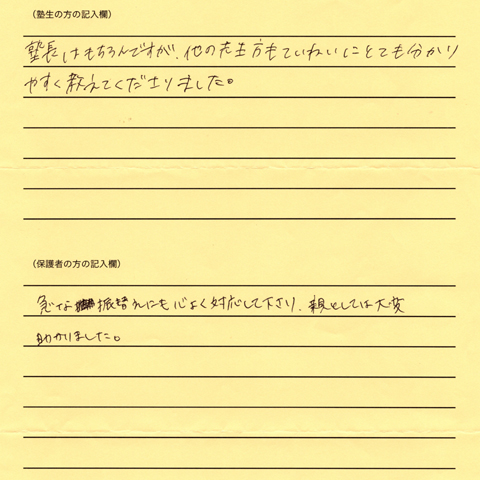 (塾生の方の記入欄)
塾長はもちろんですが、他の先生方もていねいにとても分かり
やすく教えてくださりました。
(保護者の方の記入欄)
急な振替えにも心よく対応して下さり、親としては大変
助かりました。